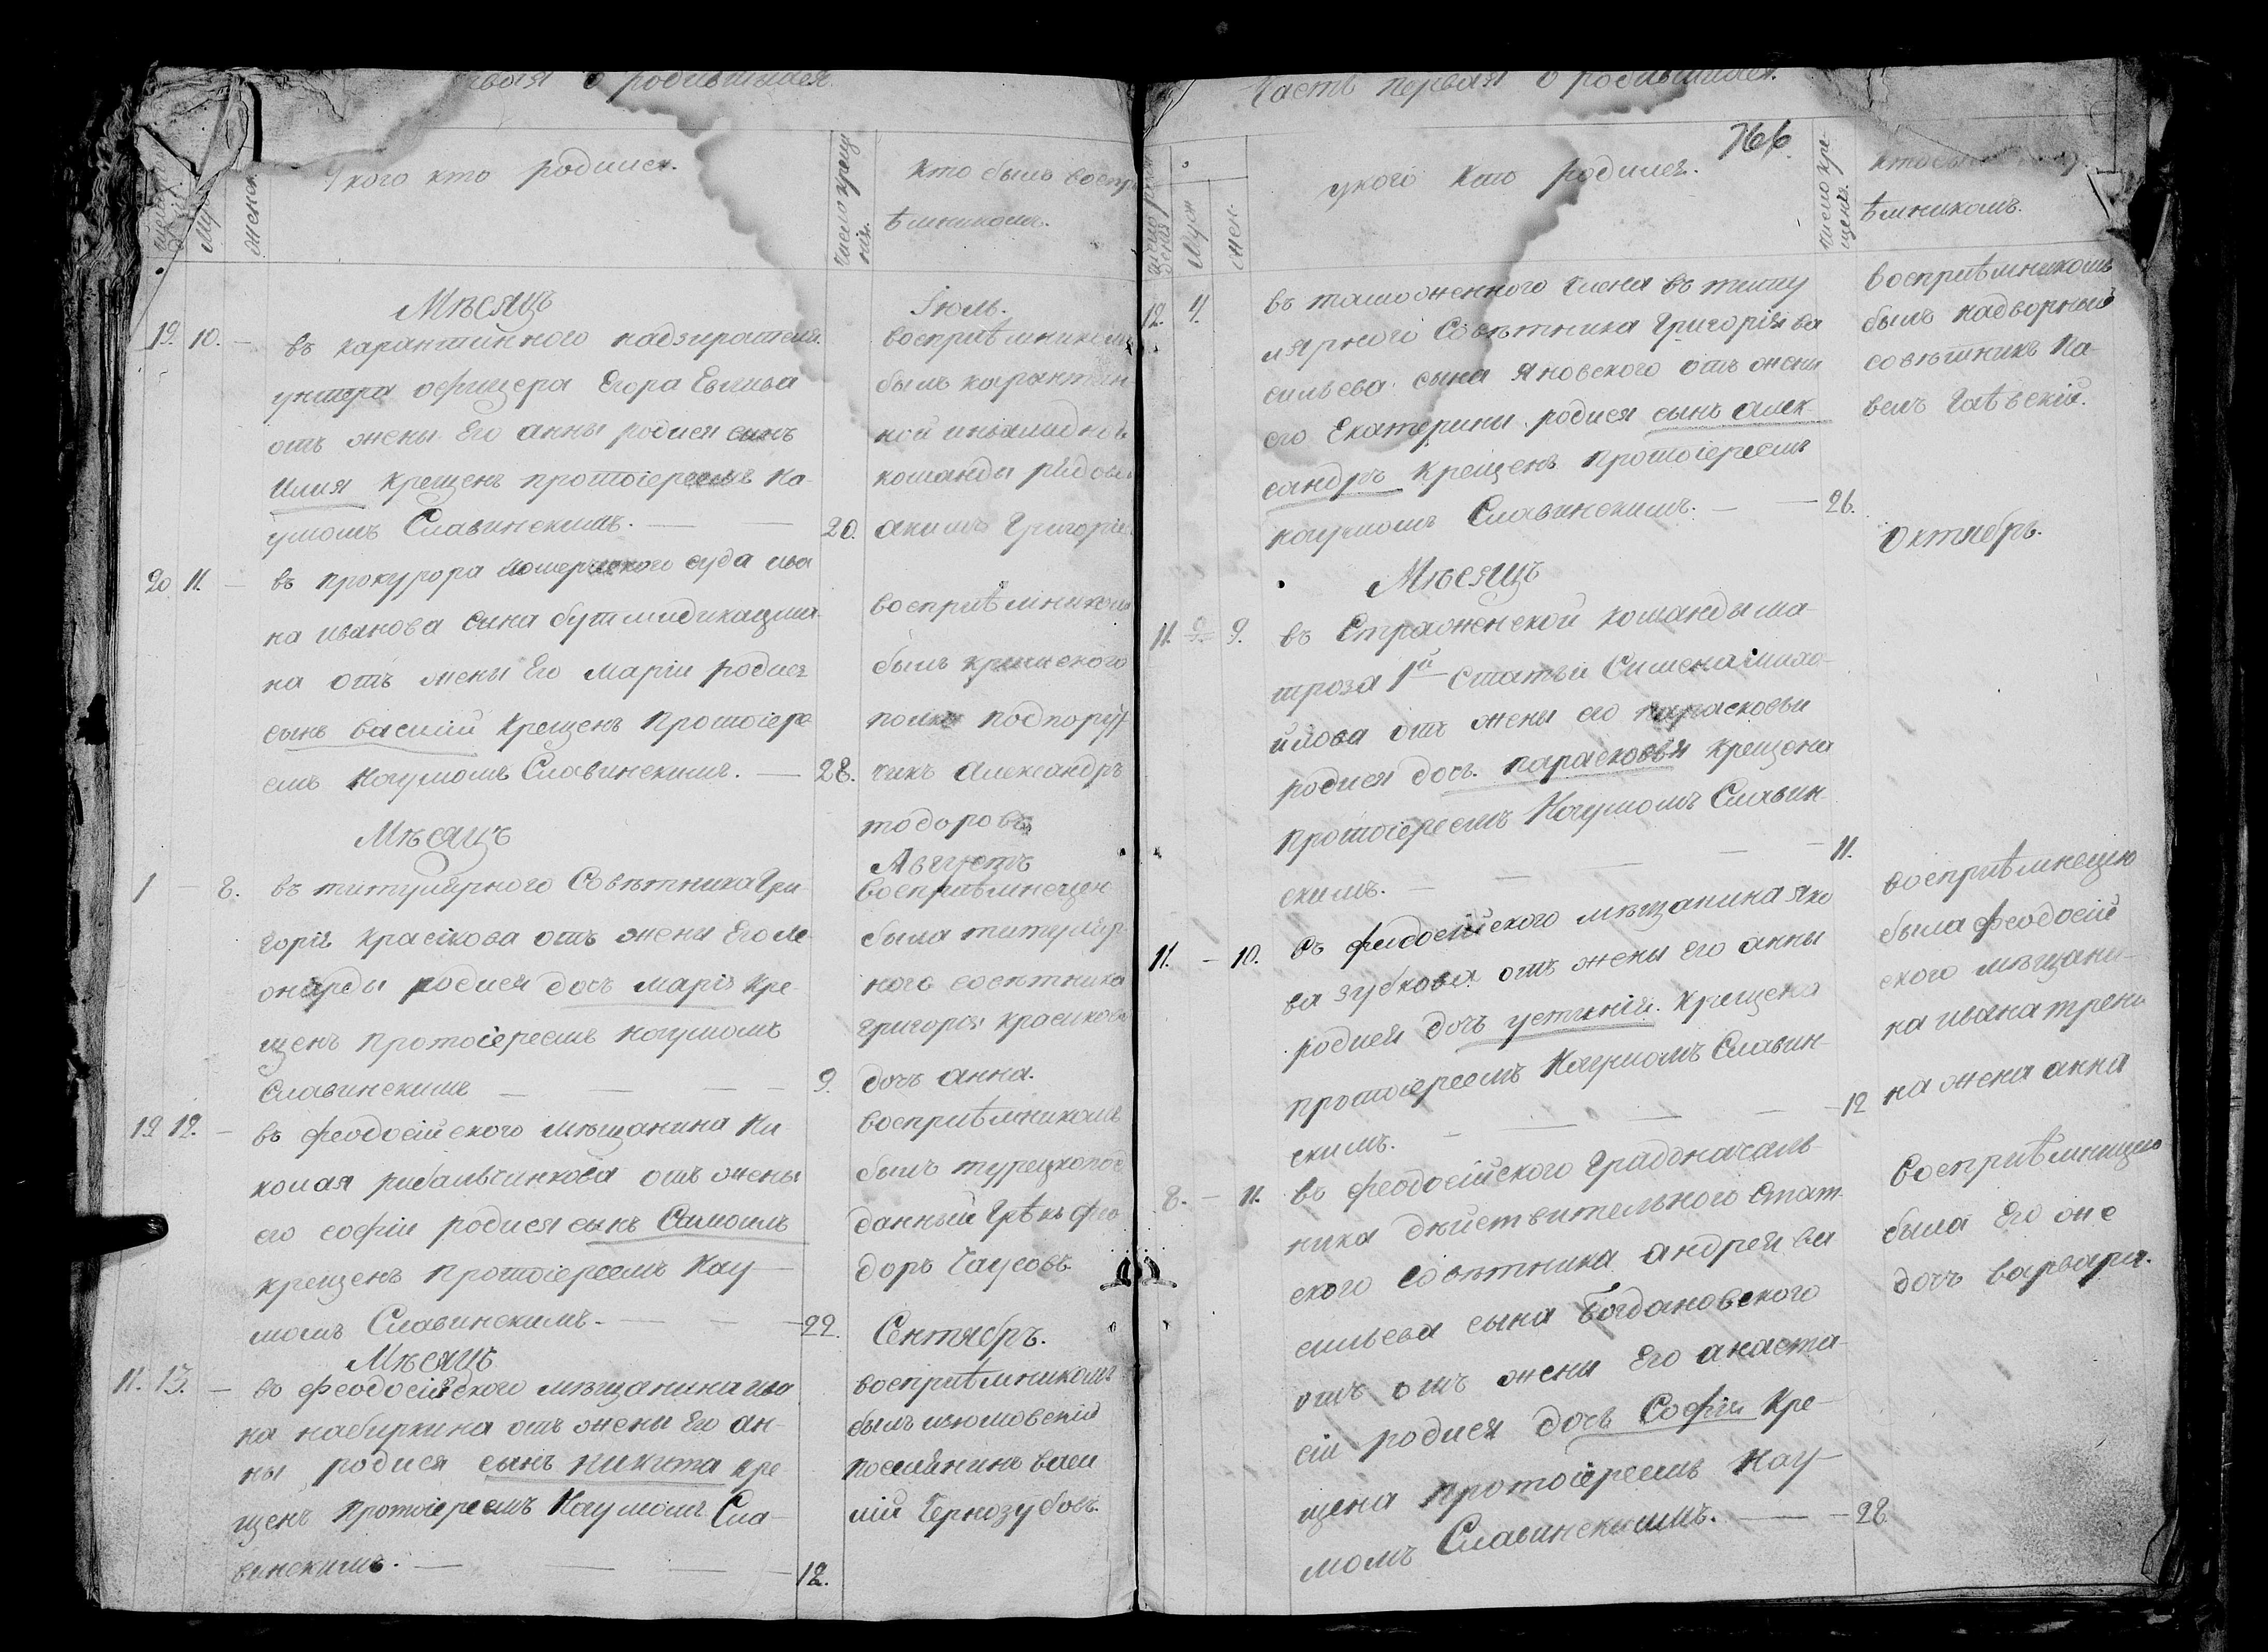 о родившихся
У кого кто родился.
Число креще
нія.
Кто былъ воспр
ѣмникомъ.
женск
Мѣсяцъ
Іюль.
19. 10. — въ карантинного надзирателя
унтера офицера Егора Евлива
отъ жены Его анны родися сынъ
илия крещенъ протоіереемъ На-
умомъ Славинскимъ. — — 20.
восприѣмникомъ
былъ карантин
ной инвалидной
команды рядовы
акимъ Григорие
20 11. — въ прокурора комерческого суда ива
на иванова сина бутмидикацина-
на отъ жены Его Маріи родися
сынъ василий крещенъ протоіере
емъ Наумомъ Славинскимъ. — 28.
восприѣмникомъ
былъ кримского
полка подпору
чикъ Александръ
тодоровъ
Мѣсяцъ
Августъ
1 — 8. въ титулярного Совѣтника Гри
горія красікова отъ жены Его Ле
онарды родися дочъ марія кре-
щенъ протоіереемъ наумомъ
Славинскимъ — — — 9.
восприѣмнецею
была титуляр
ного совѣтника
григорія красикова
дочъ анна.
19 12. — въ феодосійского мѣщанина Ни-
колая рибальчинкова отъ жены
его софіи родися сынъ Самоилъ
крещенъ протоіереемъ Нау—
момъ Славинскимъ. — — — 22.
восприѣмникомъ
былъ турецкопод
данный Грѣкъ фео
доръ Чаусовъ
Мѣсяцъ
Сентябръ.
11. 13. — въ феодосійского мѣщанина ива
на набиркина отъ жены Его ан-
ны родися сынъ никита кре
щенъ протоіереемъ Наумомъ Сла-
винскимъ. — — — 12.
восприѣмникомъ
былъ изюмовскій
поселянинъ васи
лій Чернозубовъ.
Часть первая о родившихся.
766
у кого кто родился.
Число кре-
щенія.
ѣмникомъ.
Муж
жен.
12. 4. въ таможенного члена въ титу
лярного Совѣтника Григорія ва
сильева сына Яновского отъ жени
его Екатерины родися сынъ алек-
сандръ крещенъ протоіереемъ
наумомъ Славинскимъ. — — 26.
восприѣмникомъ
былъ надворный
совѣтникъ Па-
велъ Гаѣвскій.
Мѣсяцъ
Октябръ.
11. 9. въ Стражнской команды ма-
троза 1й статьи Симена михо-
йлова отъ жены его параскоеви
родися дочъ параскоевъя крещена
протоіереемъ Наумомъ Славин-
скимъ. — — — — 11.
11. — 10. въ феодосійского мѣщанина яко
ва зубкова отъ жены его анны
родися дочъ устинія. крещена
протоіереемъ Наумомъ Славин-
скимъ. — — — — 12
восприѣмнецею
была феодосій
ского мѣщани-
на ивана трени
на жена анна
8. — 11. въ феодосійского Градоначаль-
ника дѣйствительного Стат-
ского Совѣтника андрея ва
сильева сына Богдановского
отъ отъ жены Его анаста-
сіи родися дочъ Софія кре-
щена протоіереемъ Нау—
момъ Славинскимъ. — — 28.
Восприѣмницею
была Его же
дочъ варвара.